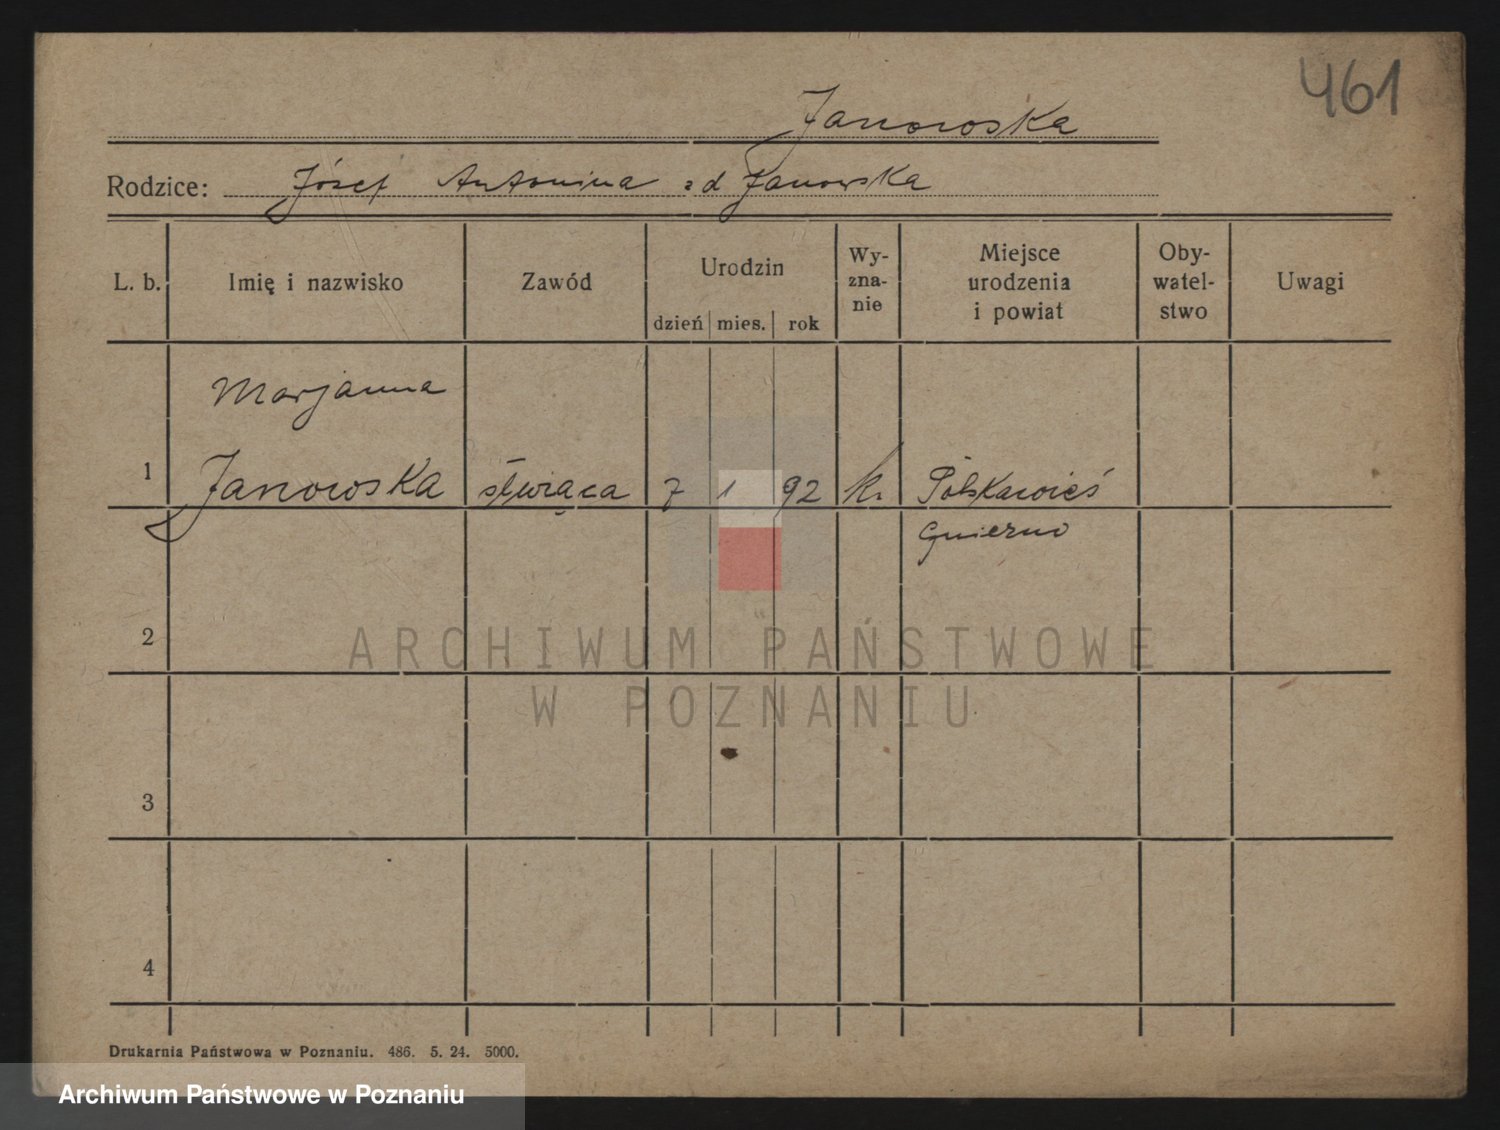 461
Janowska
Rodzice: Józef Antonina zd Janowska
L. b. Imię i nazwisko Zawód Urodzin Wy-zna-nie Miejsce urodzenia i powiat Oby-watel-stwo Uwagi
dzień mies. rok
Marjanna
1 Janowska służąca 7 1 92 k. Polskawieś
Gniezno
2
ARCHIWUM PAŃSTWOWE
W POZNANIU
3
4
Drukarnia Państwowa w Poznaniu. 486. 5. 24. 5000.
Archiwum Państwowe w Poznaniu